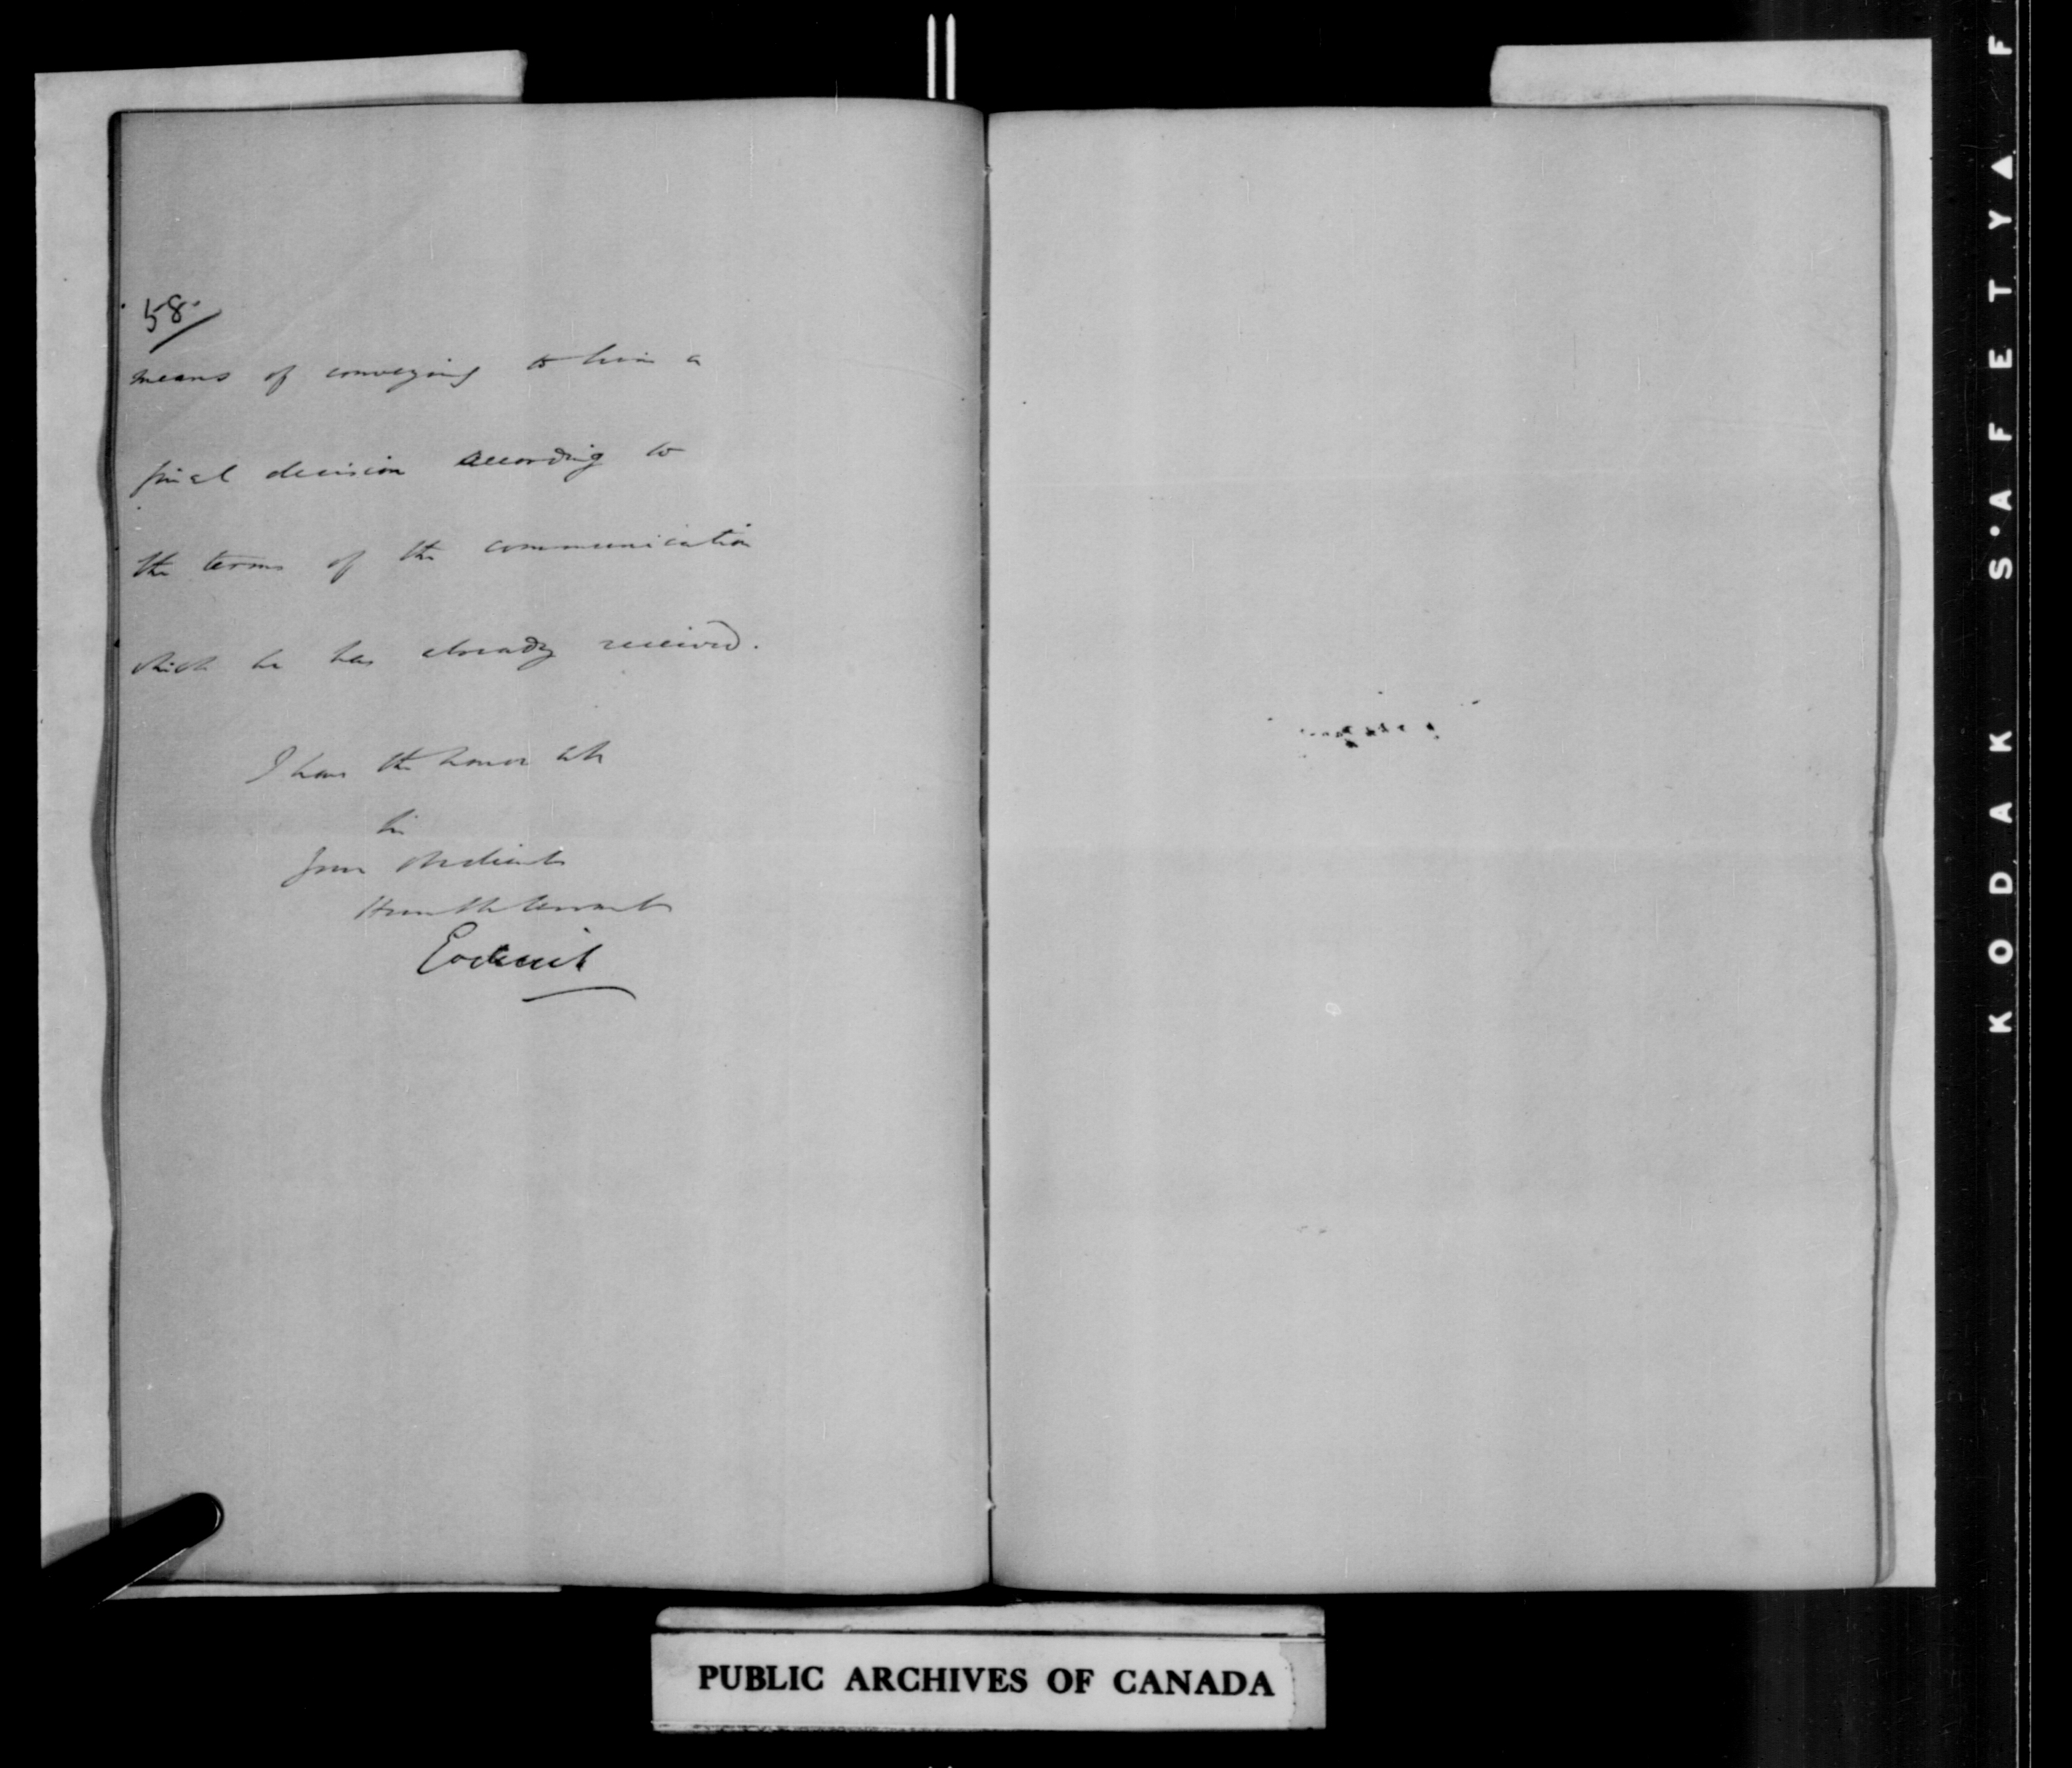 58
means of conveying to him a
final decision according to
the terms of the communication
which he has already received.
I have the honor to be
Sir
Your obedient
Humble Servant
Goderich
PUBLIC ARCHIVES OF CANADA
KODAK S'AFETY▲ F